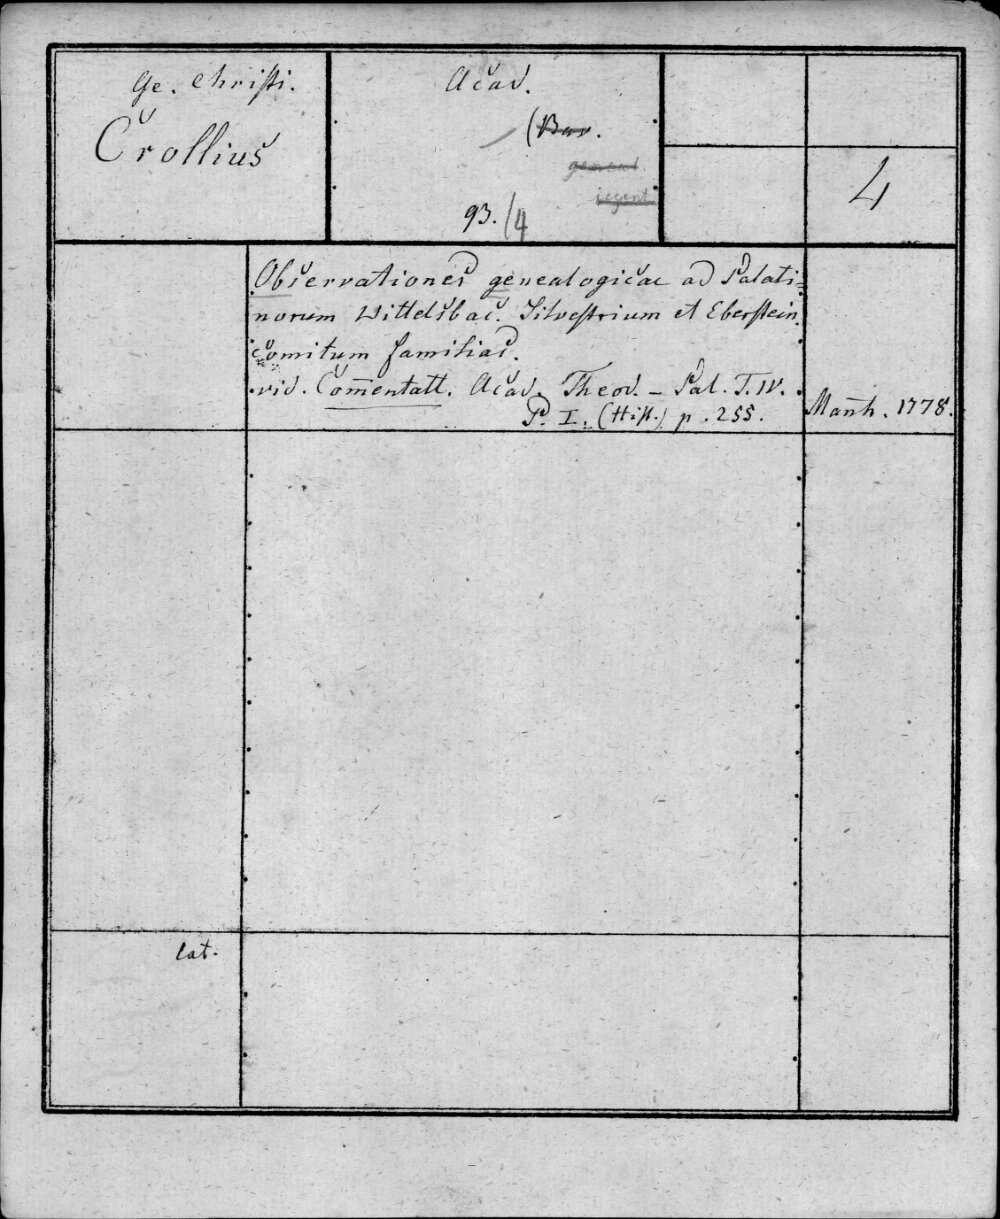 Ge. Christi.
Crollius
Acad.
(Bav.
geneal.
regent
93./4
4
Observationes genealogicae ad Palati=
norum Wittelsbac. Silvestrium et Eberstein.
comitum familias.
vid. Com̄entatt. Acad. Theod. - Pal. T. IV.
P. I. (Hist.) p. 255.
Man̄h. 1778.
lat.